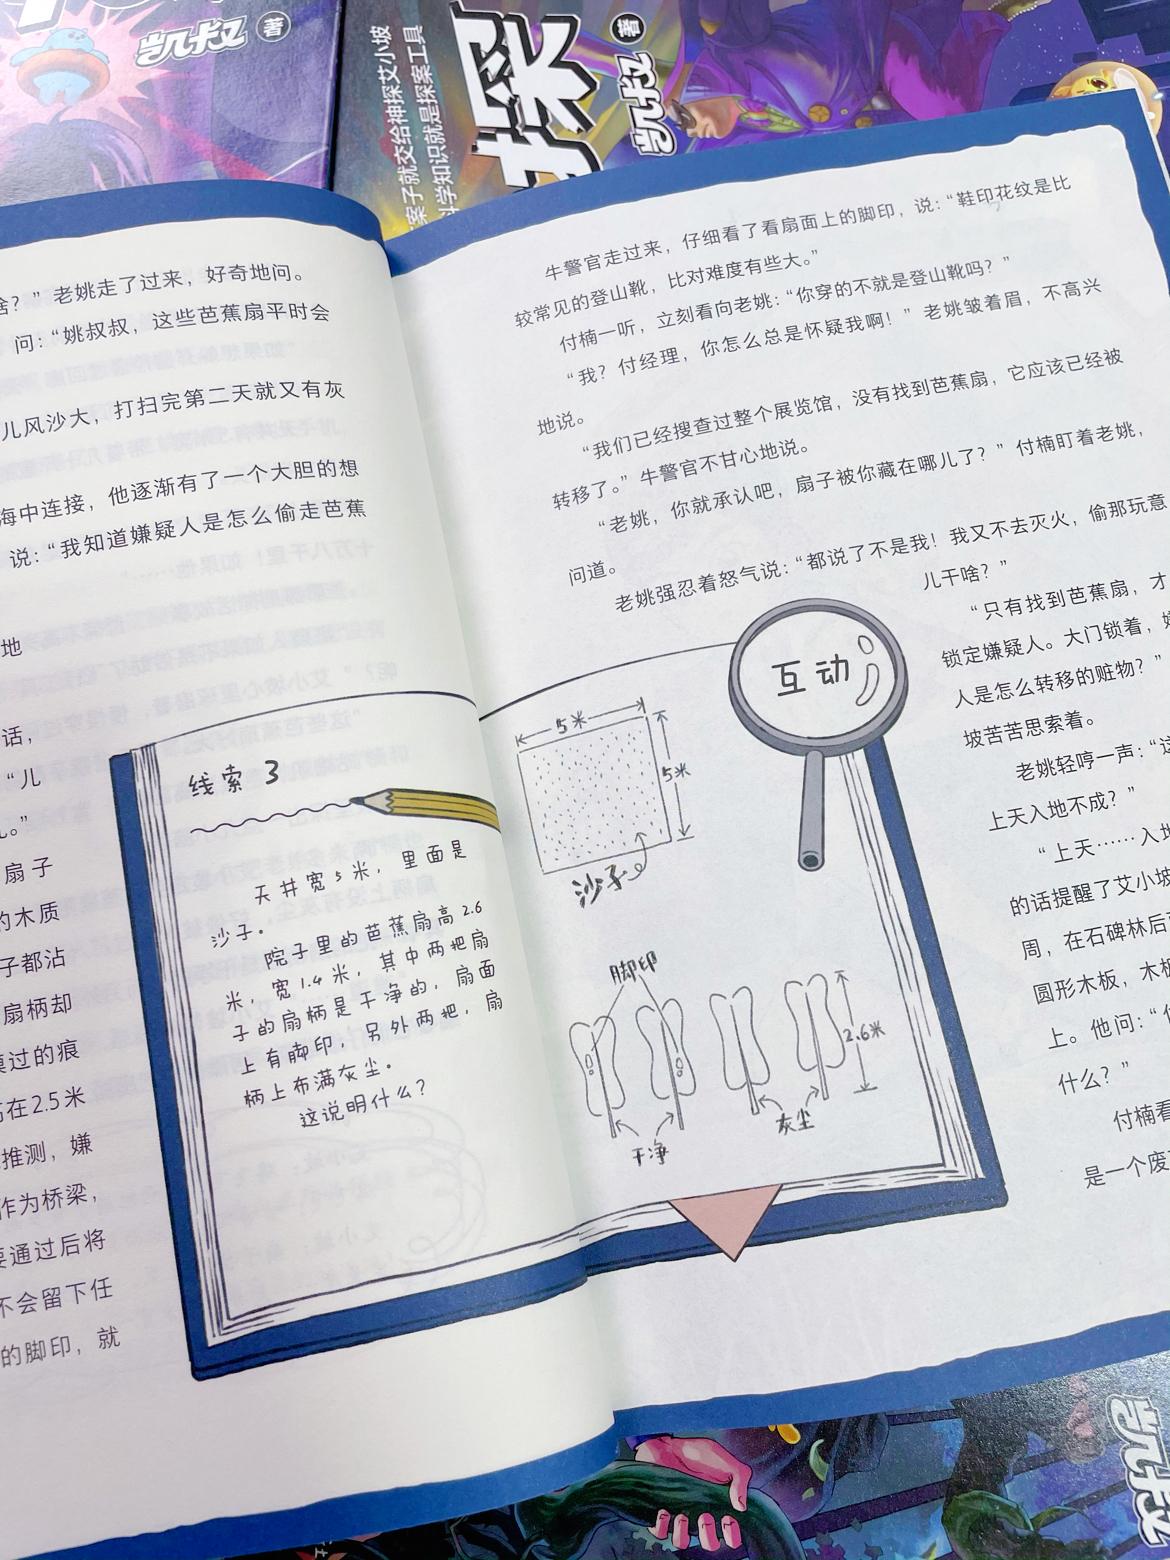 凯叔 著
案子就交给神探艾小坡
科学知识就是探案工具
探
凯叔 著
啥？”老姚走了过来，好奇地问。
问：“姚叔叔，这些芭蕉扇平时会
儿风沙大，打扫完第二天就又有灰
海中连接，他逐渐有了一个大胆的想
说：“我知道嫌疑人是怎么偷走芭蕉
地
话，
“儿
。”
扇子
的木质
子都沾
扇柄却
摸过的痕
在2.5米
推测，嫌
作为桥梁，
要通过后将
不会留下任
的脚印，就
线索3
天井宽5米，里面是
沙子。
院子里的芭蕉扇高2.6
米，宽1.4米，其中两把扇
子的扇柄是干净的，扇面
上有脚印；另外两把，扇
柄上布满灰尘。
这说明什么？
牛警官走过来，仔细看了看扇面上的脚印，说：“鞋印花纹是比
较常见的登山靴，比对难度有些大。”
付楠一听，立刻看向老姚：“你穿的不就是登山靴吗？”
“我？付经理，你怎么总是怀疑我啊！”老姚皱着眉，不高兴
地说。
“我们已经搜查过整个展览馆，没有找到芭蕉扇，它应该已经被
转移了。”牛警官不甘心地说。
“老姚，你就承认吧，扇子被你藏在哪儿了？”付楠盯着老姚，
问道。
老姚强忍着怒气说：“都说了不是我！我又不去灭火，偷那玩意
儿干啥？”
“只有找到芭蕉扇，才
锁定嫌疑人。大门锁着，嫌
人是怎么转移的赃物？”
坡苦苦思索着。
老姚轻哼一声：“这
上天入地不成？”
“上天……入地
的话提醒了艾小坡
周，在石碑林后
圆形木板，木板
上。他问：“
什么？”
付楠看
是一个废
互动
5米
5米
沙子
脚印
2.6米
干净
灰尘
凯叔